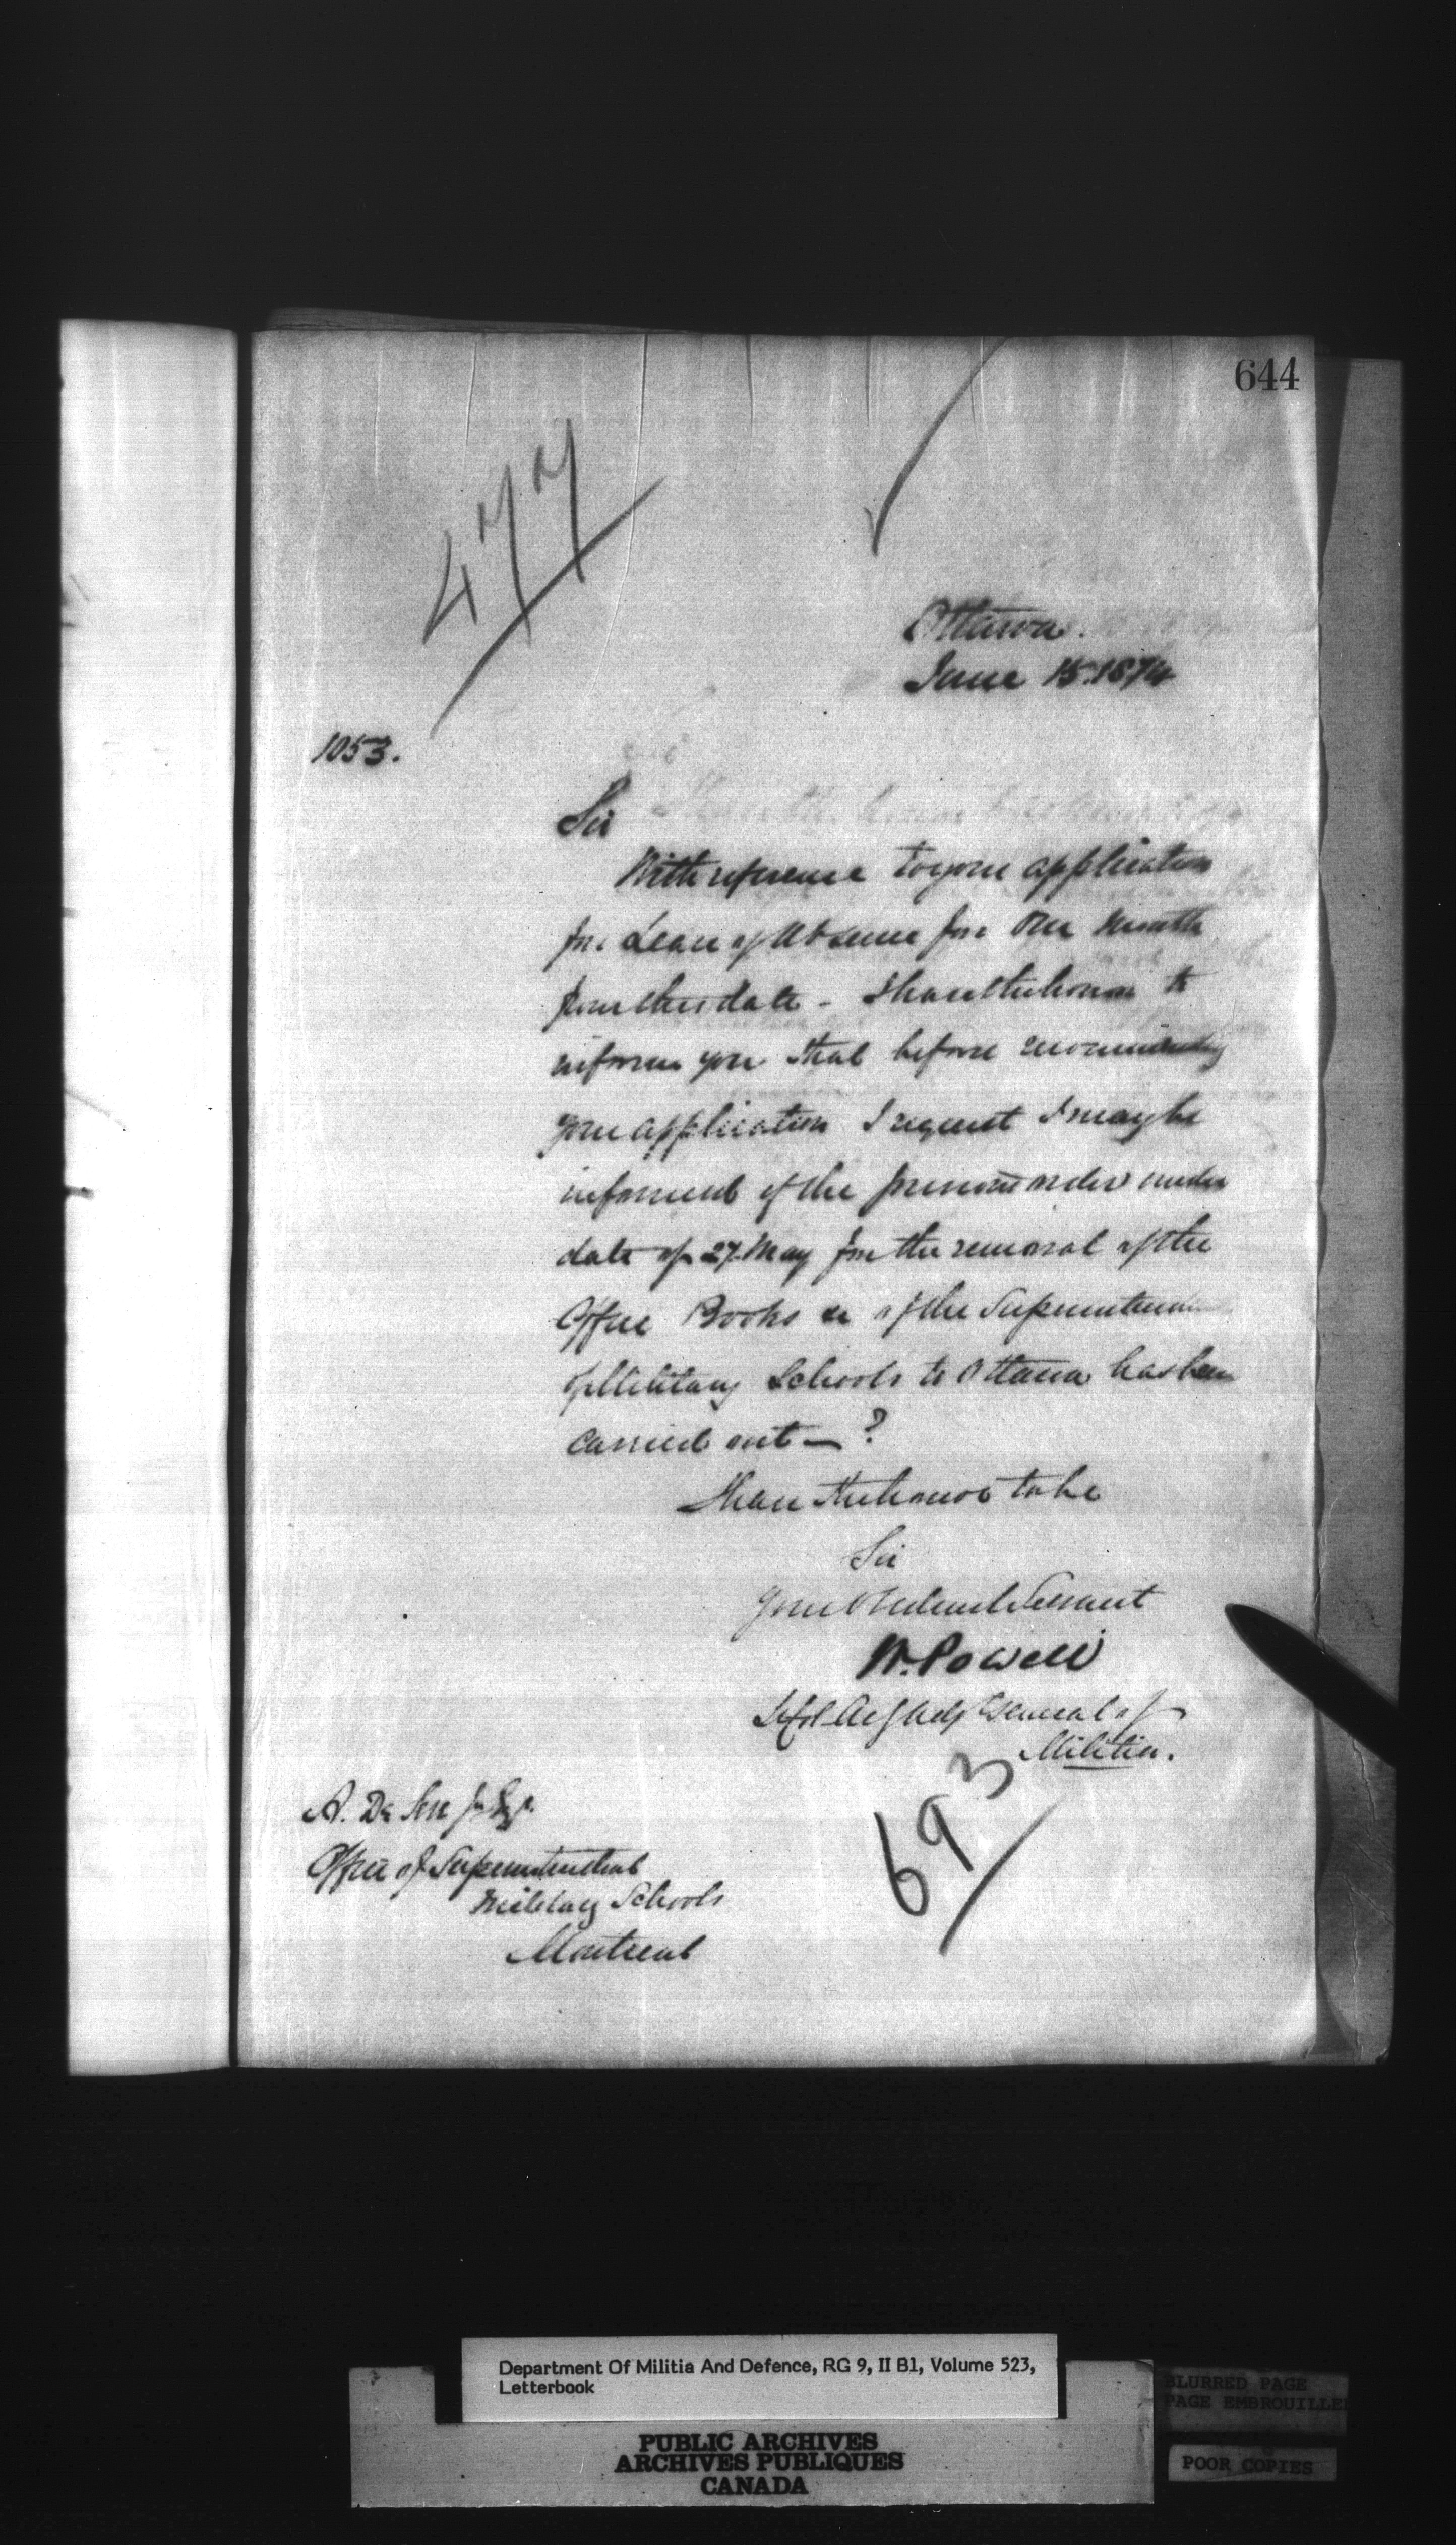 644
477
Ottawa.
June 15. 1874
1053.
Sir
With reference to your application
for Leave of Absence for One Month
from this date - I have the honor to
inform you that before recommending
your application I request I may be
informed if the previous order under
date of 27 May for the removal of the
Office Books &c of the Superintendent
of Military Schools to Ottawa has been
carried out — ?
I have the honor to be
Sir
Your Obedient Servant
W. Powell
Lt Col Actg Adjt General of
Militia.
693
A. De
Office of Superintendent
Military Schools
Montreal
Department Of Militia And Defence, RG 9, II B1, Volume 523,
Letterbook
PUBLIC ARCHIVES
ARCHIVES PUBLIQUES
CANADA
BLURRED PAGE
PAGE EMBROUILLE
POOR COPIES